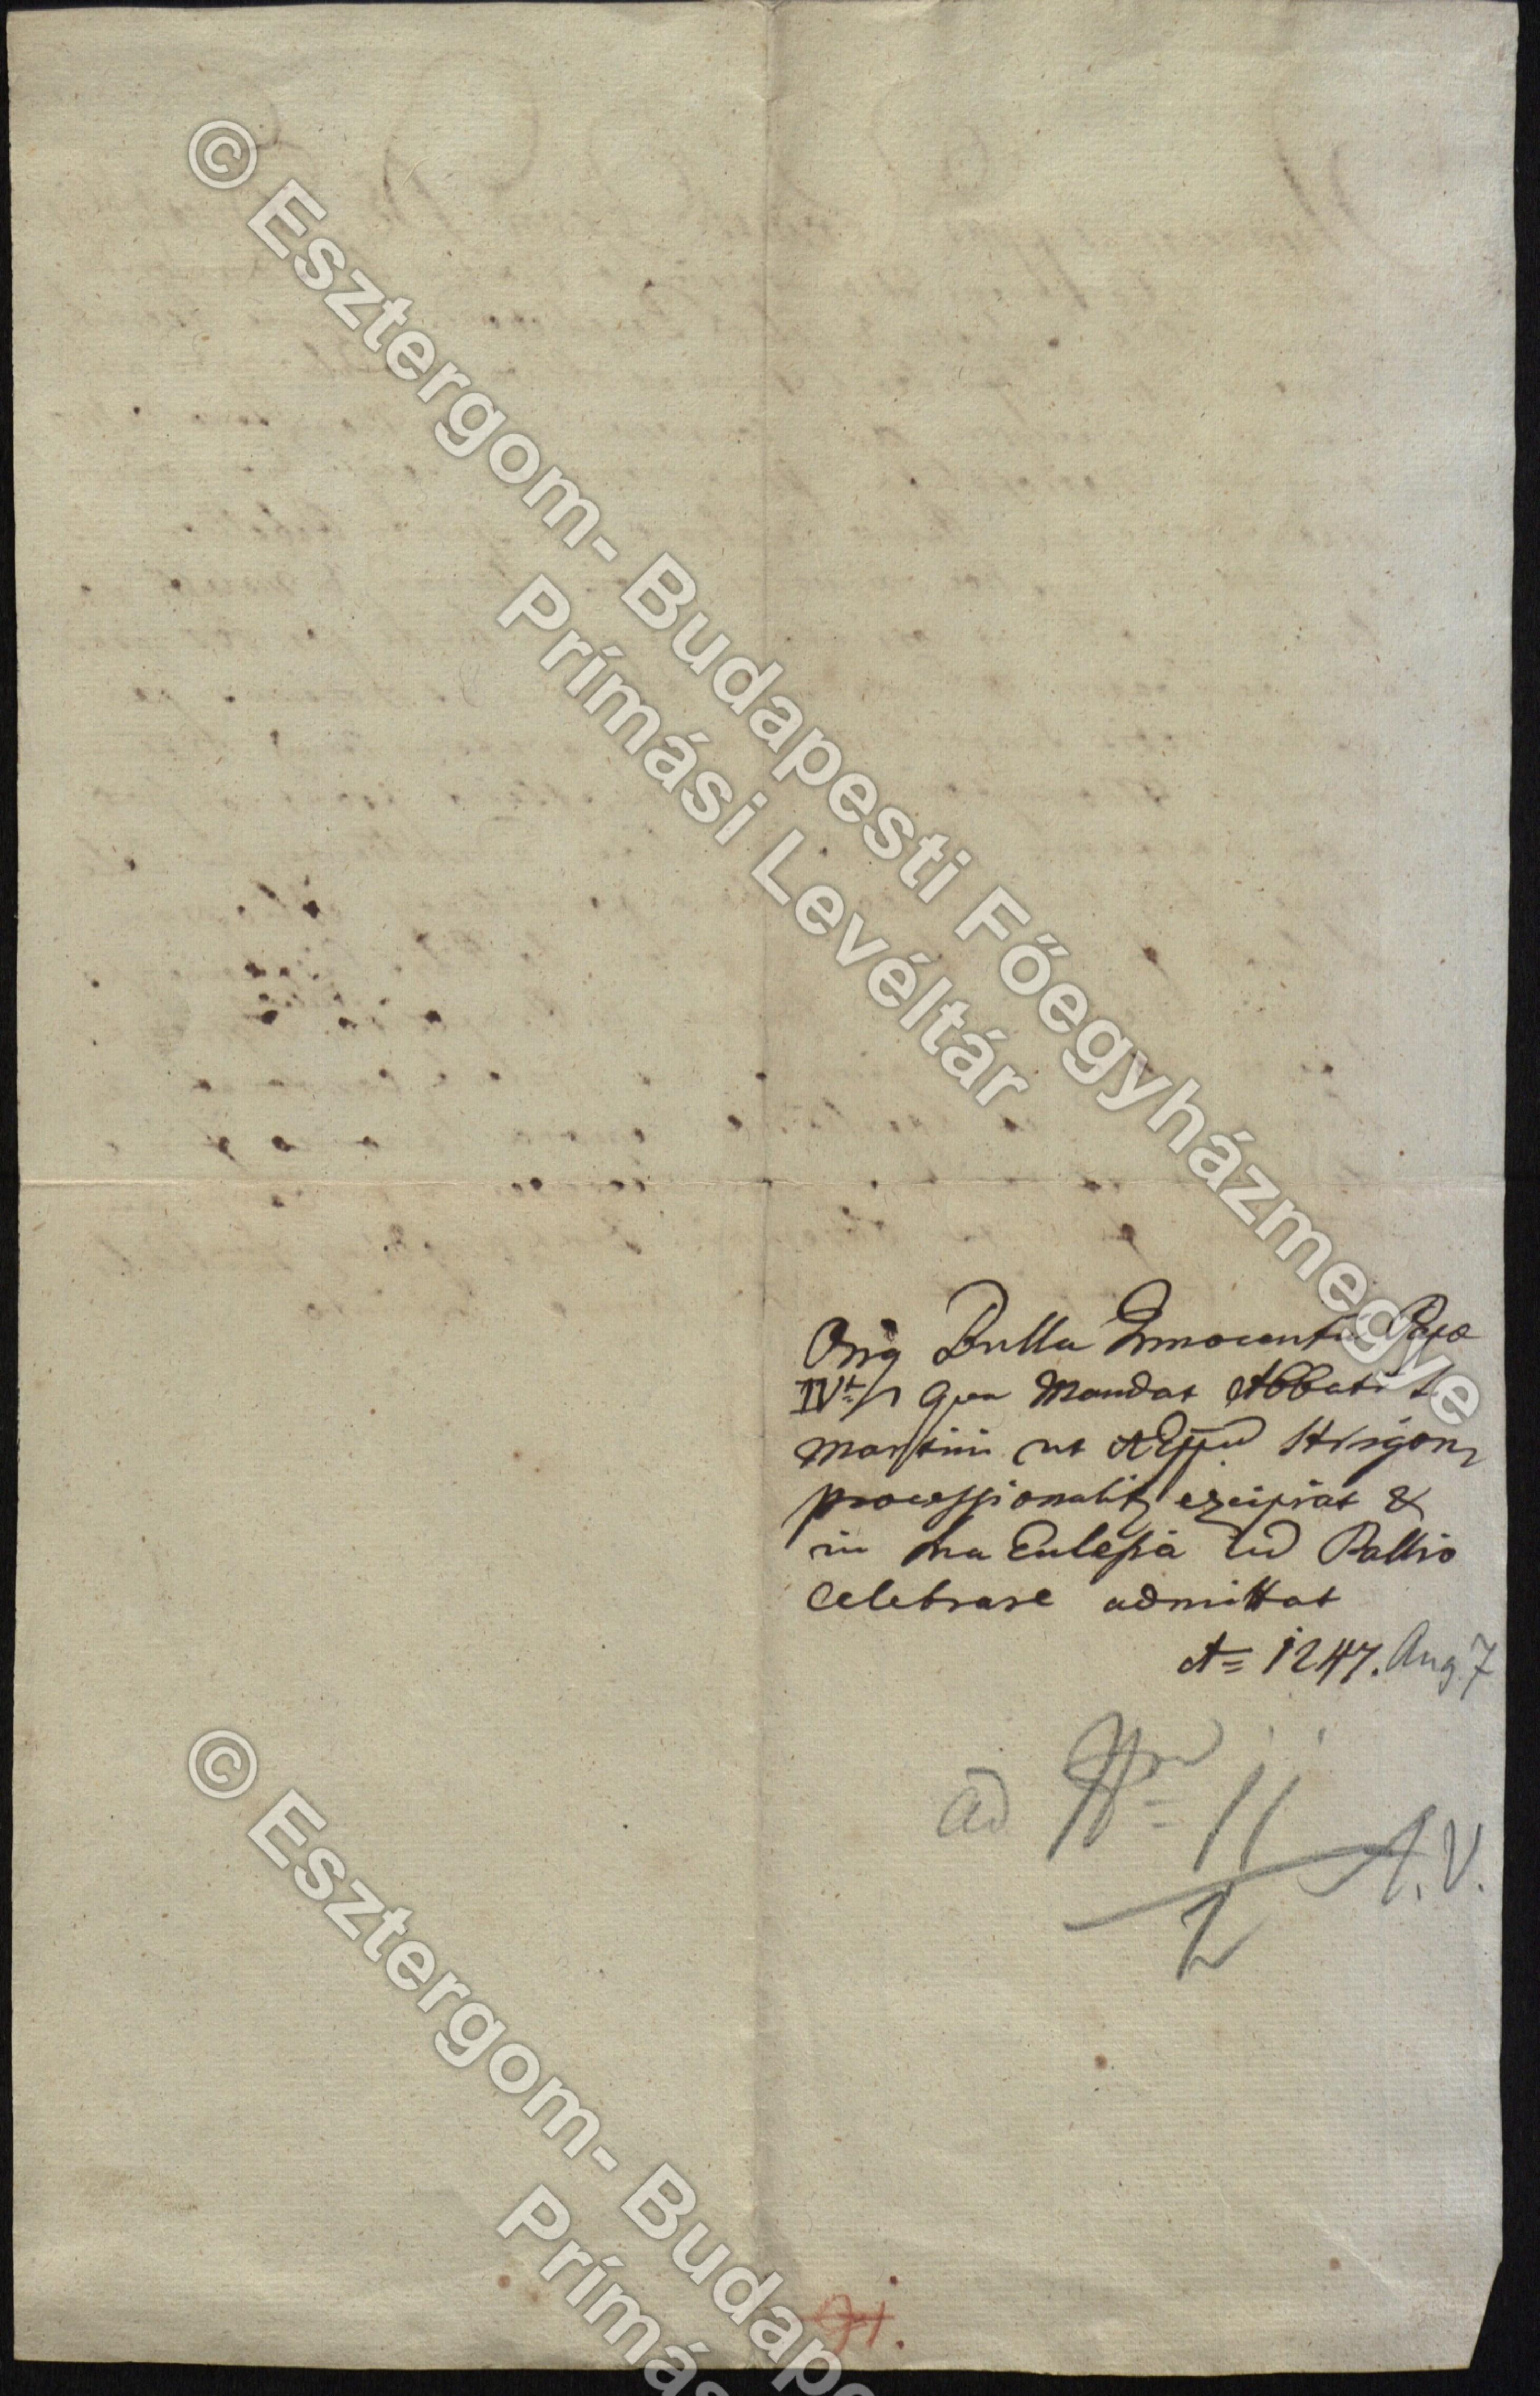 © Esztergom- Budapesti Főegyházmegye
Prímási Levéltár
Orig Bulla Innocentii Papæ
IVti qua Mandat Abbati S
Martini ut AEppū Strigon
processionalit excipiat &
in sua Ecclesia cū Pallio
Celebrare admittat
A= 1247. Aug. 7
ad Nr= 11
2
A.V.
© Esztergom- Budape
Prímás
91.